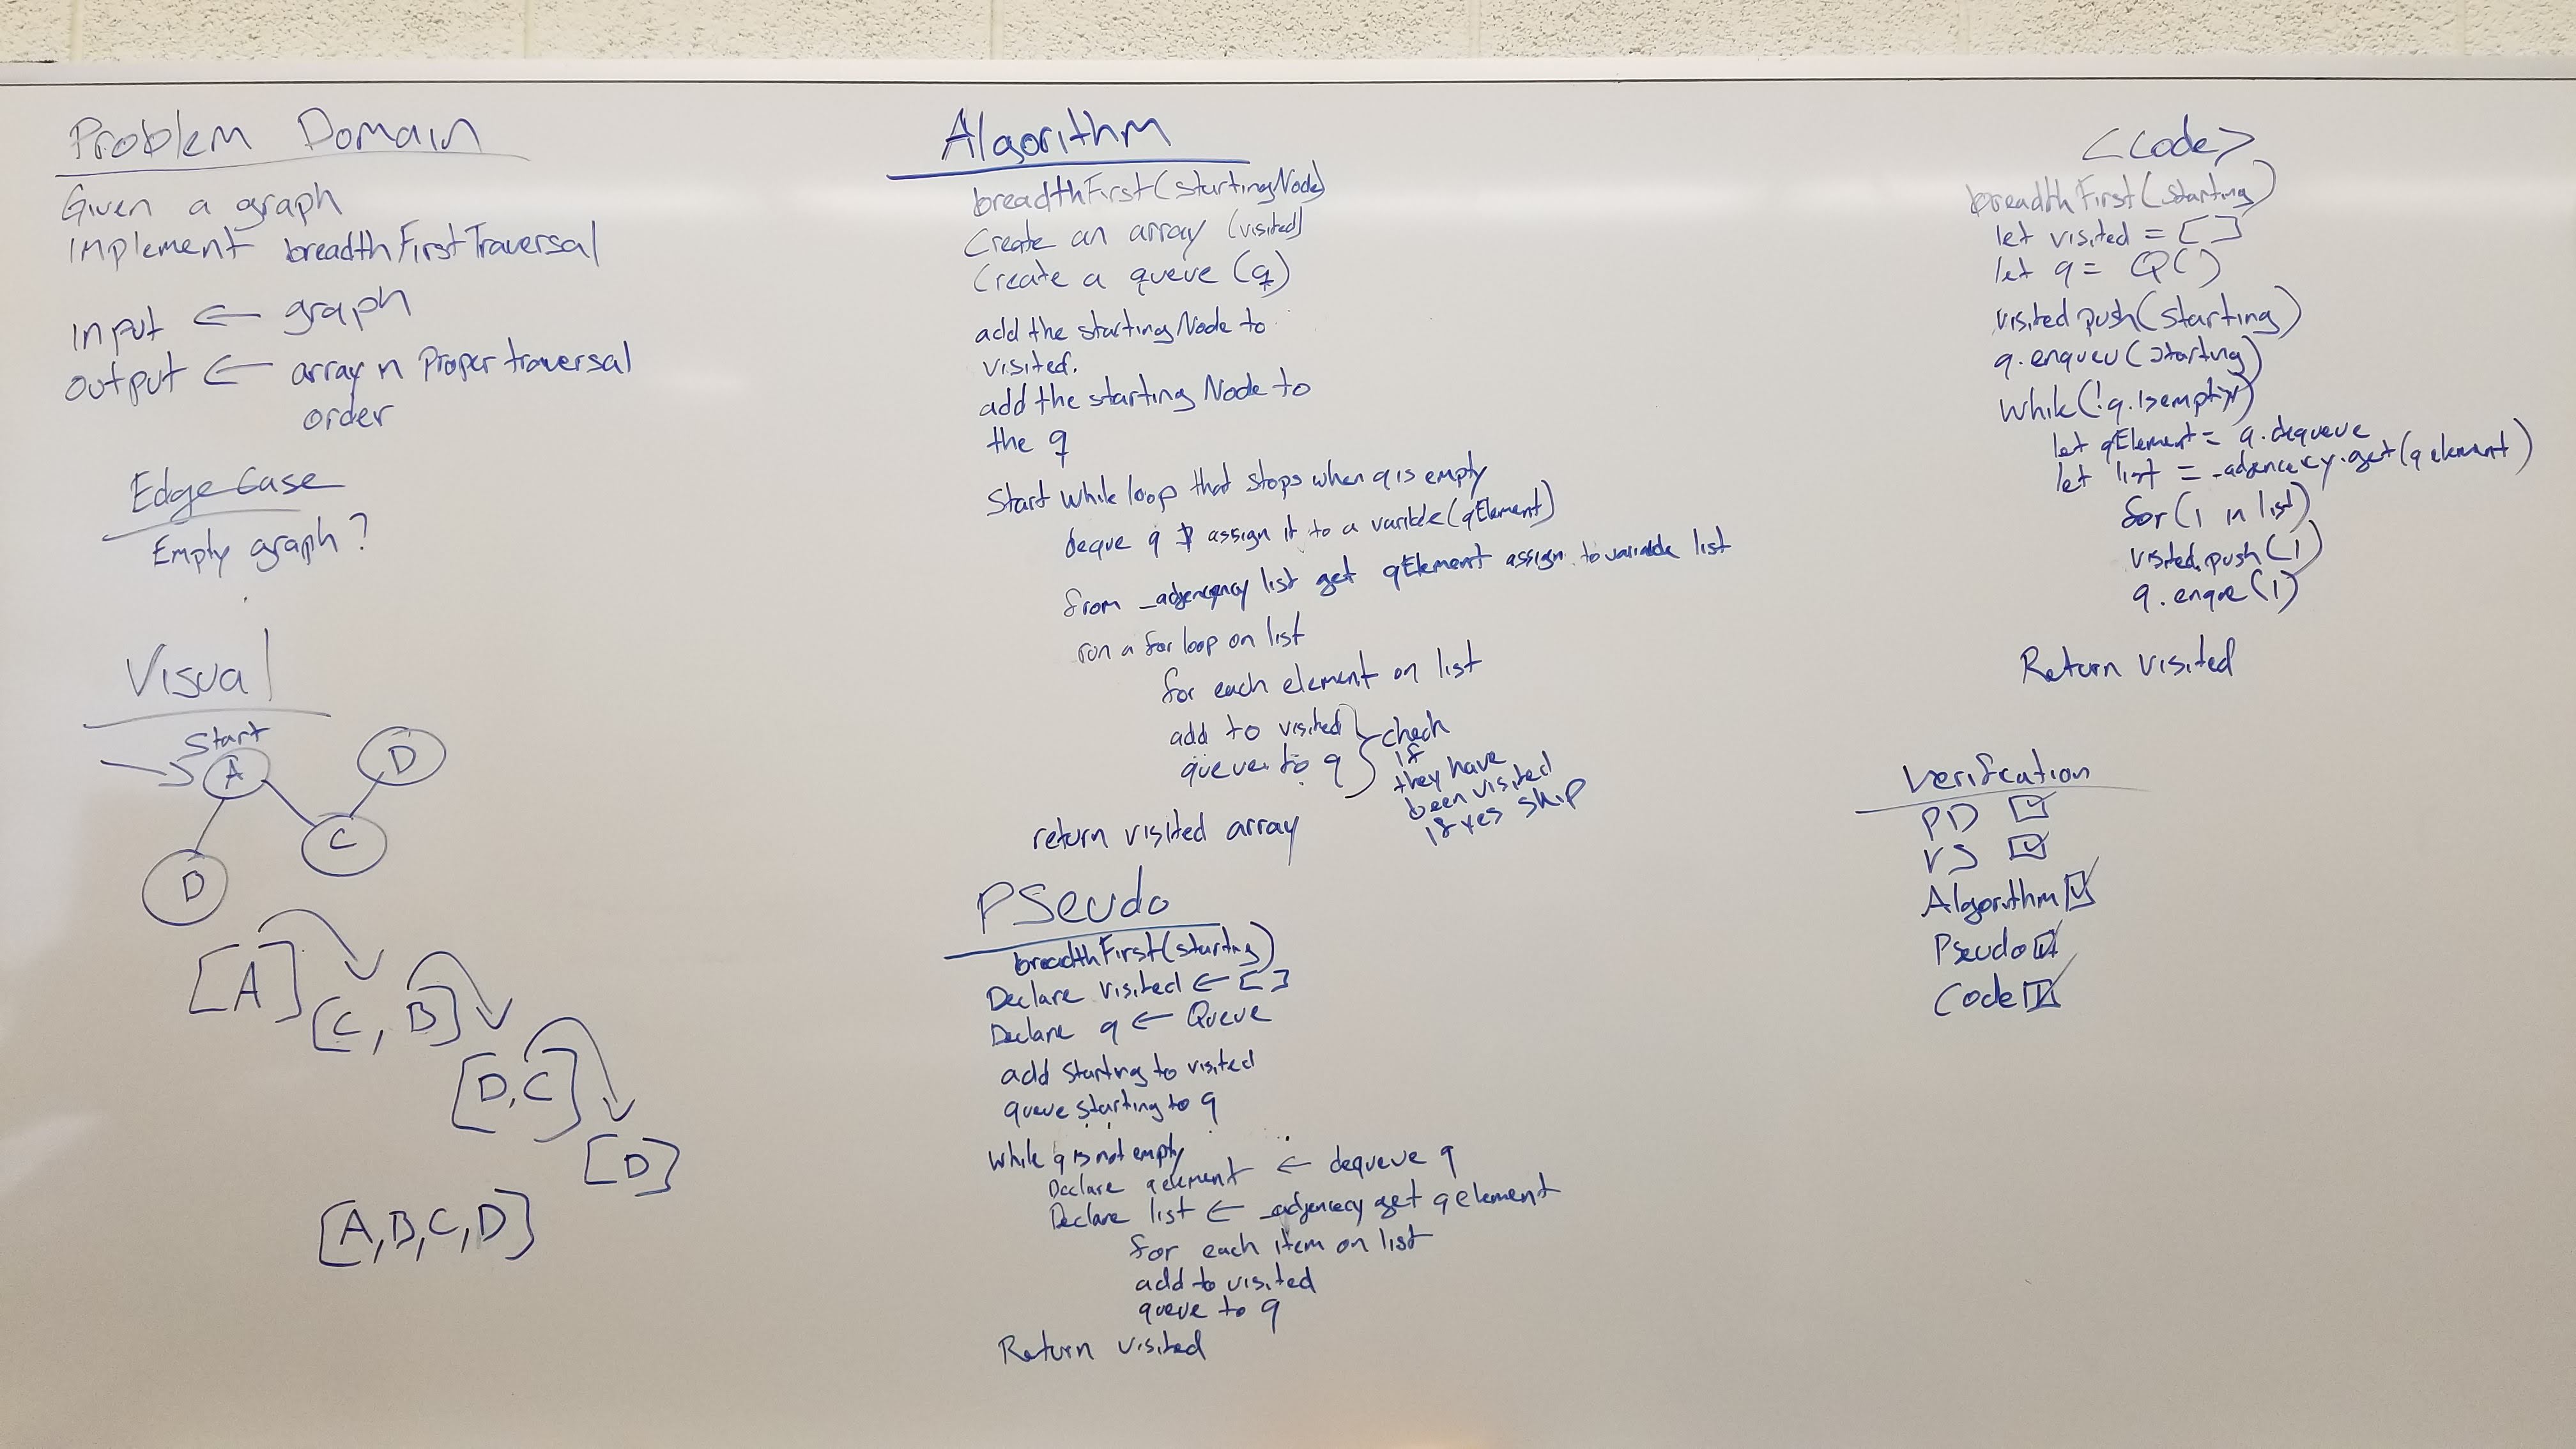 Problem Domain
Given a graph
Implement breadthFirstTraversal
Input ← graph
Output ← array n Proper traversal
order
Edge Case
Empty graph?
Visual
Start
A
D
C
D
[A]
[C, B]
[D, C]
[D]
[A, B, C, D]
Algorithm
breadthFirst(startingNode)
Create an array (visited)
Create a queue (q)
add the starting Node to
visited.
add the starting Node to
the q
Start while loop that stops when q is empty
deque q & assign it to a varible (qElement)
from _adjencency list get qElement assign to variable list
run a for loop on list
for each element on list
add to visited
queue to q
check
if
they have
been visited
if yes skip
return visited array
PSeudo
breadthFirst(starting)
Declare visited ← []
Declare q ← Queue
add starting to visited
queue starting to q
while q is not empty
Declare qelement ← dequeue q
Declare list ← _adjencecy get qelement
for each item on list
add to visited
queue to q
Return visited
<Code>
breadthFirst(starting)
let visited = []
let q = Q()
visited.push(starting)
q.enqueu(starting)
While(!q.isempty)
let qElement = q.dequeue
let list = _adjencecy.get(qelement)
for(i in list)
visited.push(i)
q.enque(i)
Return visited
Verification
PD ☑
VS ☑
Algorithm ☑
Pseudo ☑
Code ☑